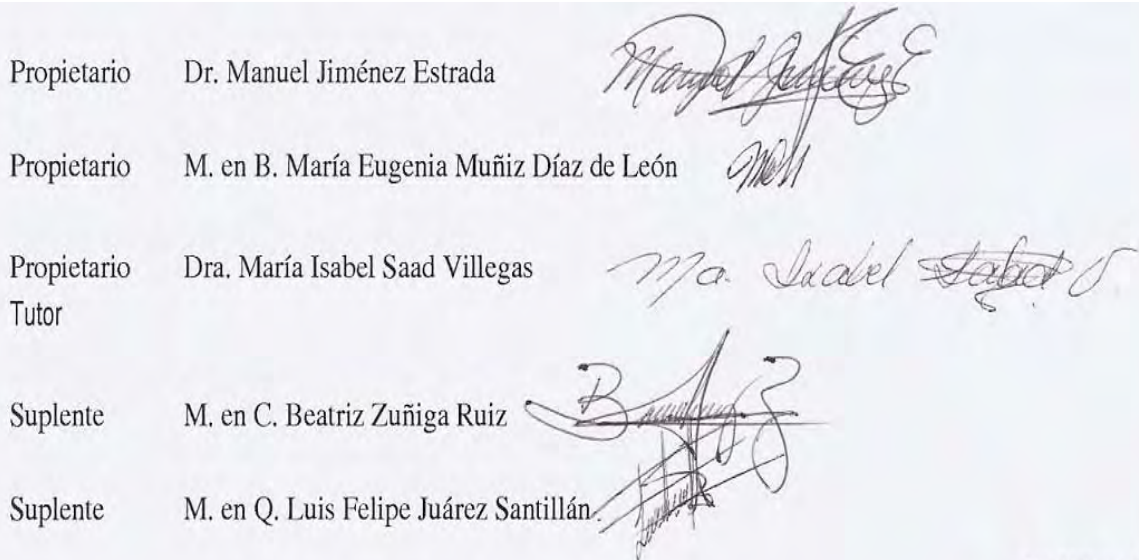 Propietario Dr. Manuel Jiménez Estrada
Propietario M. en B. María Eugenia Muñiz Díaz de León
Propietario Dra. María Isabel Saad Villegas Ma. Isabel
Tutor
Suplente M. en C. Beatriz Zuñiga Ruiz
Suplente M. en Q. Luis Felipe Juárez Santillán